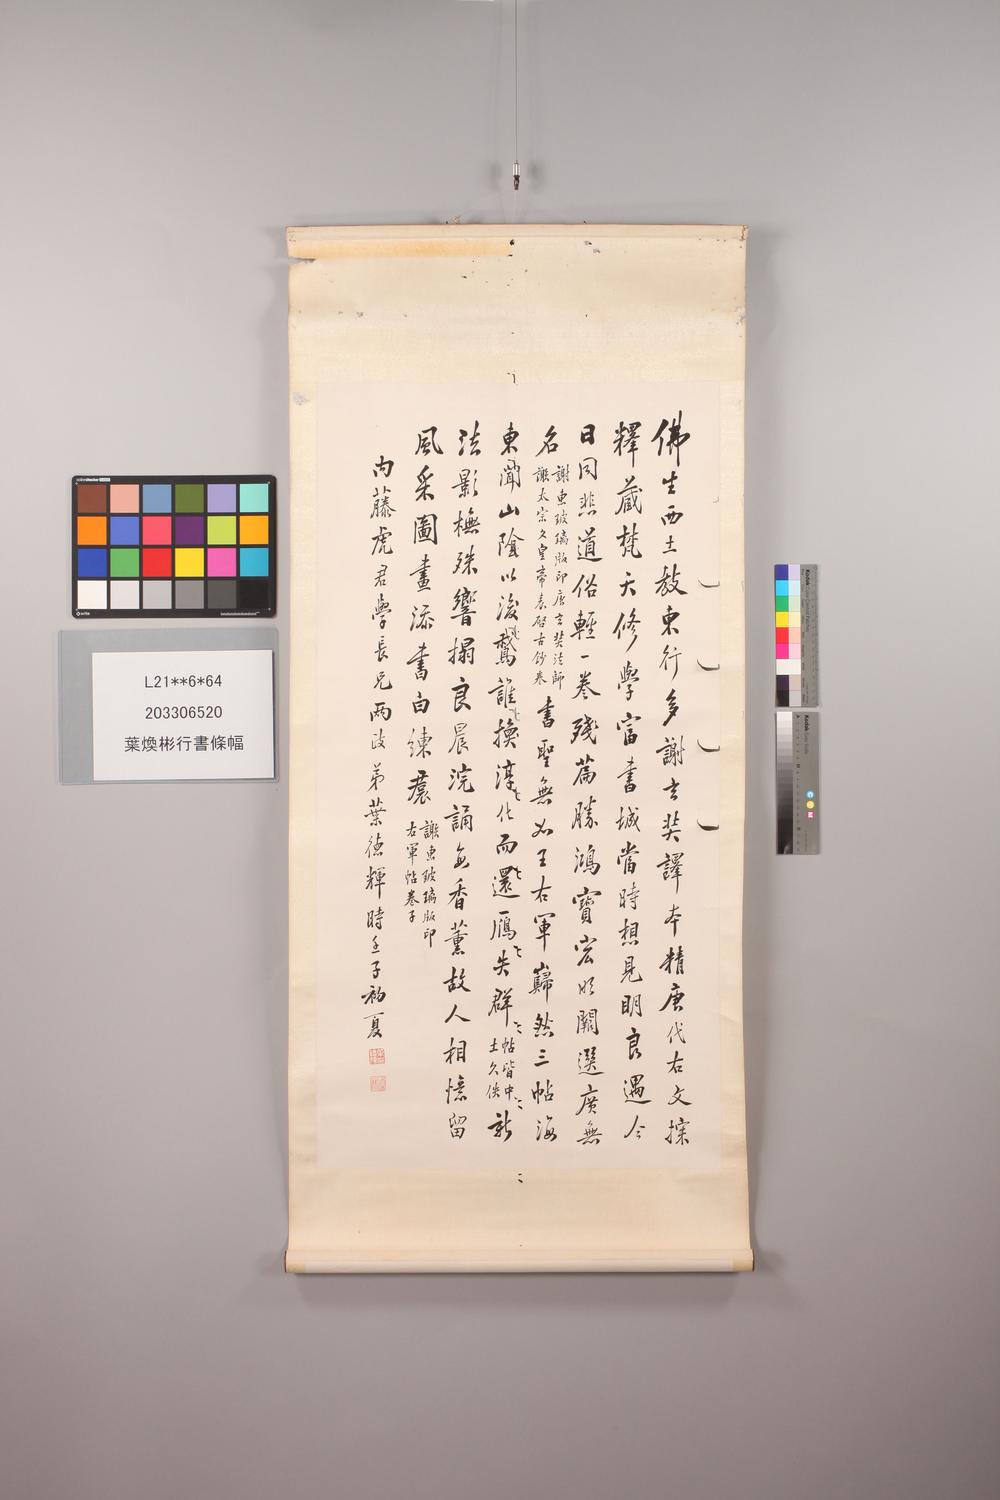 佛生西土教東行多謝玄奘譯本精唐代右文探
釋藏梵天修學富書城當時想見明良遇今
日同悲道俗輕一卷殘篇勝鴻寶宏明闕選廣無
名
謝惠玻璃版印唐玄奘法師
謝太宗文皇帝表啓古鈔卷
書聖無如王右軍巋然三帖海
東聞山陰以後鵞誰換淳化而還鴈失群
帖皆中
土久佚
新
法影橅殊響搨良晨浣誦無香薰故人相憶留
風采圖畫添書白練裙
謝惠玻璃版印
右軍帖卷子
內藤虎君學長兄兩政弟葉德輝時壬子初夏
L21**6*64
203306520
葉煥彬行書條幅